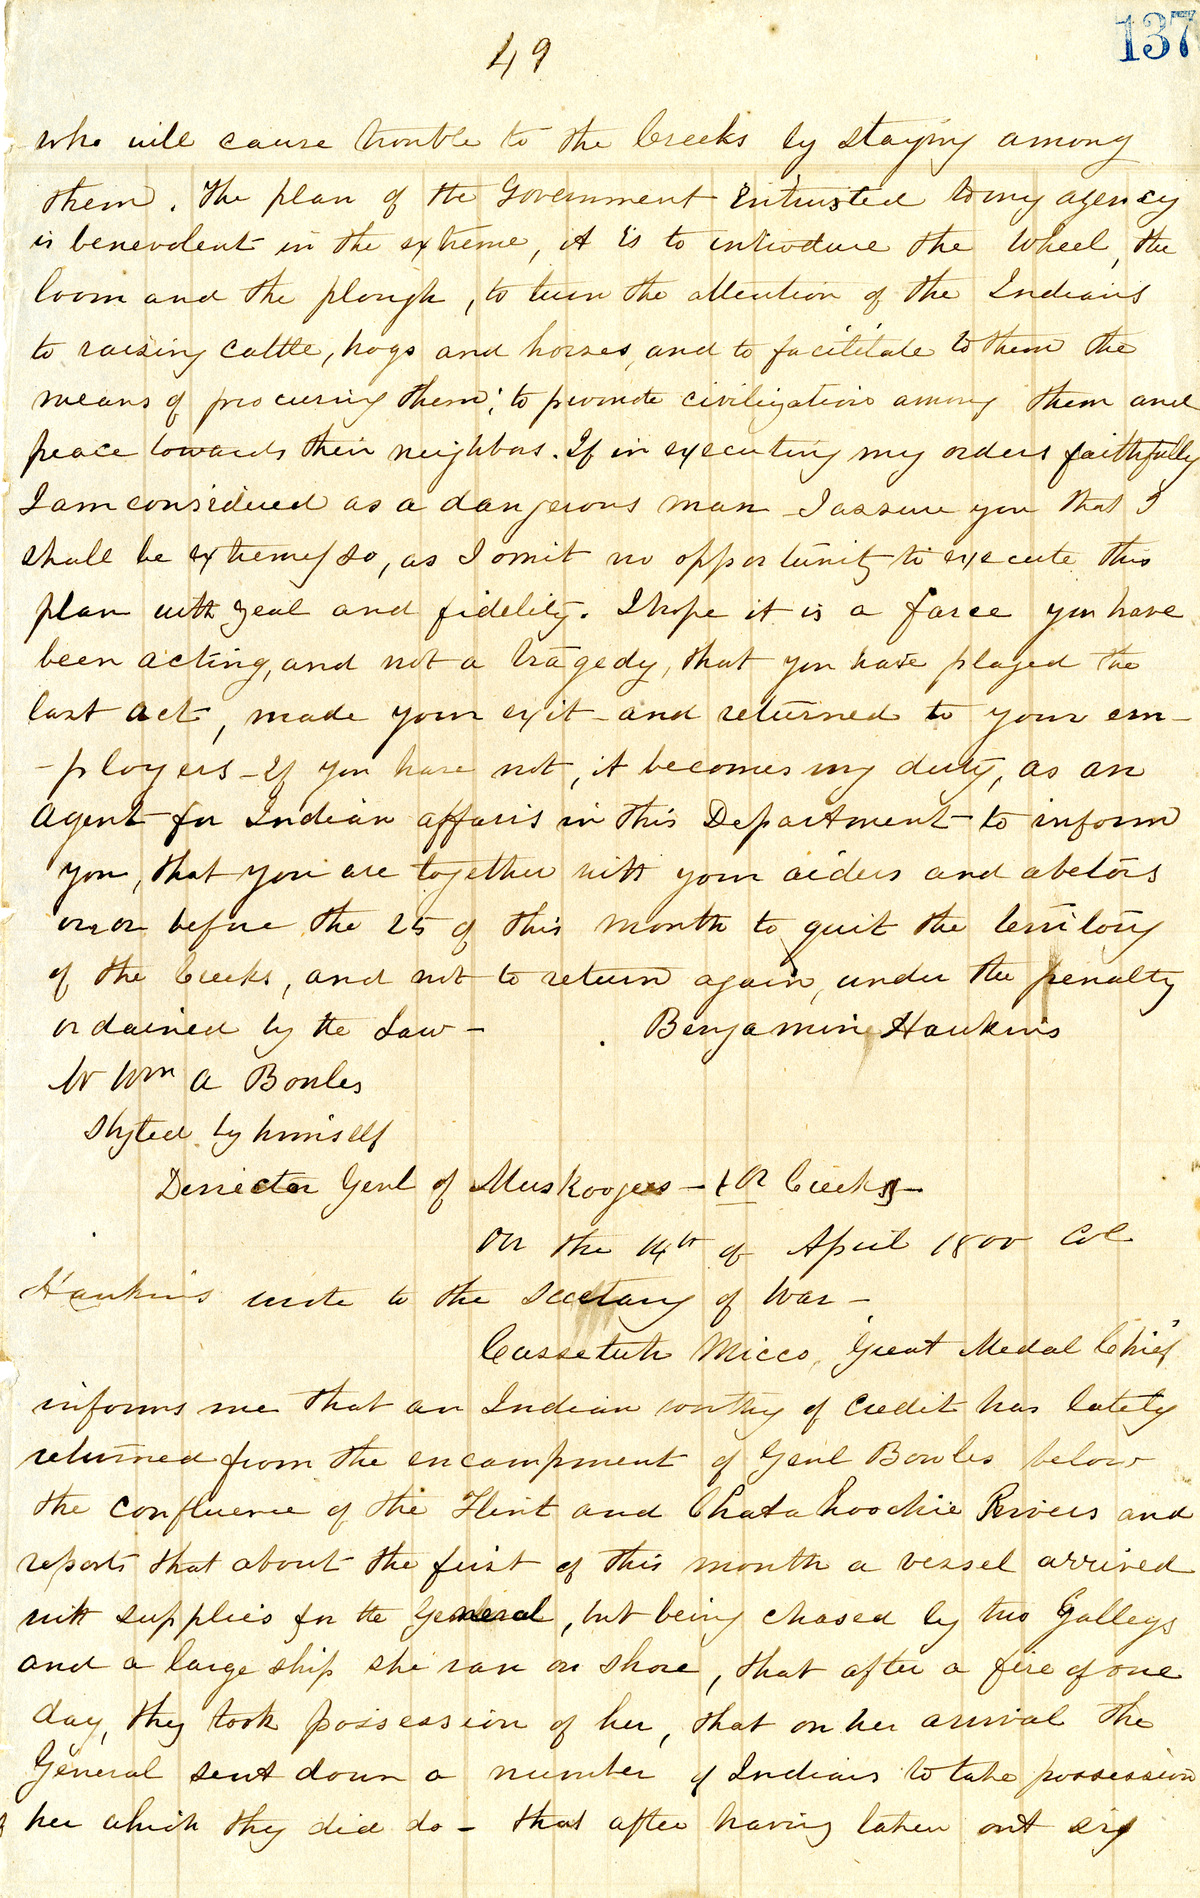 137
49
who will cause trouble to the Creeks by staying among
them. The plan of the Government Entrusted to my agency
is benevolent in the extreme, it is to introduce the Wheel, the
loom and the plough, to turn the attention of the Indians
to raising cattle, hogs and horses, and to facilitate to them the
means of procuring them; to promote civilization among them and
peace towards their neighbors. If in executing my orders faithfully
I am considered as a dangerous man - I assure you that I
shall be extremely so, as I omit no opportunity to execute this
plan with zeal and fidelity. I hope it is a farce you have
been acting, and not a tragedy, that you have played the
last act, made your exit - and returned to your em-
-ployers - If you have not, it becomes my duty, as an
Agent for Indian affairs in this Department to inform
you, that you are together with your aiders and abetors
on or before the 25 of this month to quit the territory
of the Creeks, and not to return again, under the penalty
ordained by the Law - Benjamin Hawkins
Mr Wm A Bowles
Styled by himself
Derrector Genl of Muskogees - + or Creeks -
On the 14th of April 1800 Col
Hawkins wrote to the Secretary of War -
Cussetuh Micco, "Great Medal Chief"
informs me that an Indian worthy of credit has lately
returned from the encampment of Genl Bowles below
the confluence of the Flint and Chatahoochie Rivers and
reports that about the first of this month a vessel arrived
with supplies for the General, but being chased by two Galleys
and a large ship she ran on shore, that after a fire of one
day, they took possession of her, that on her arrival the
General sent down a number of Indians to take possession
of her which they did do - that after having taken out six